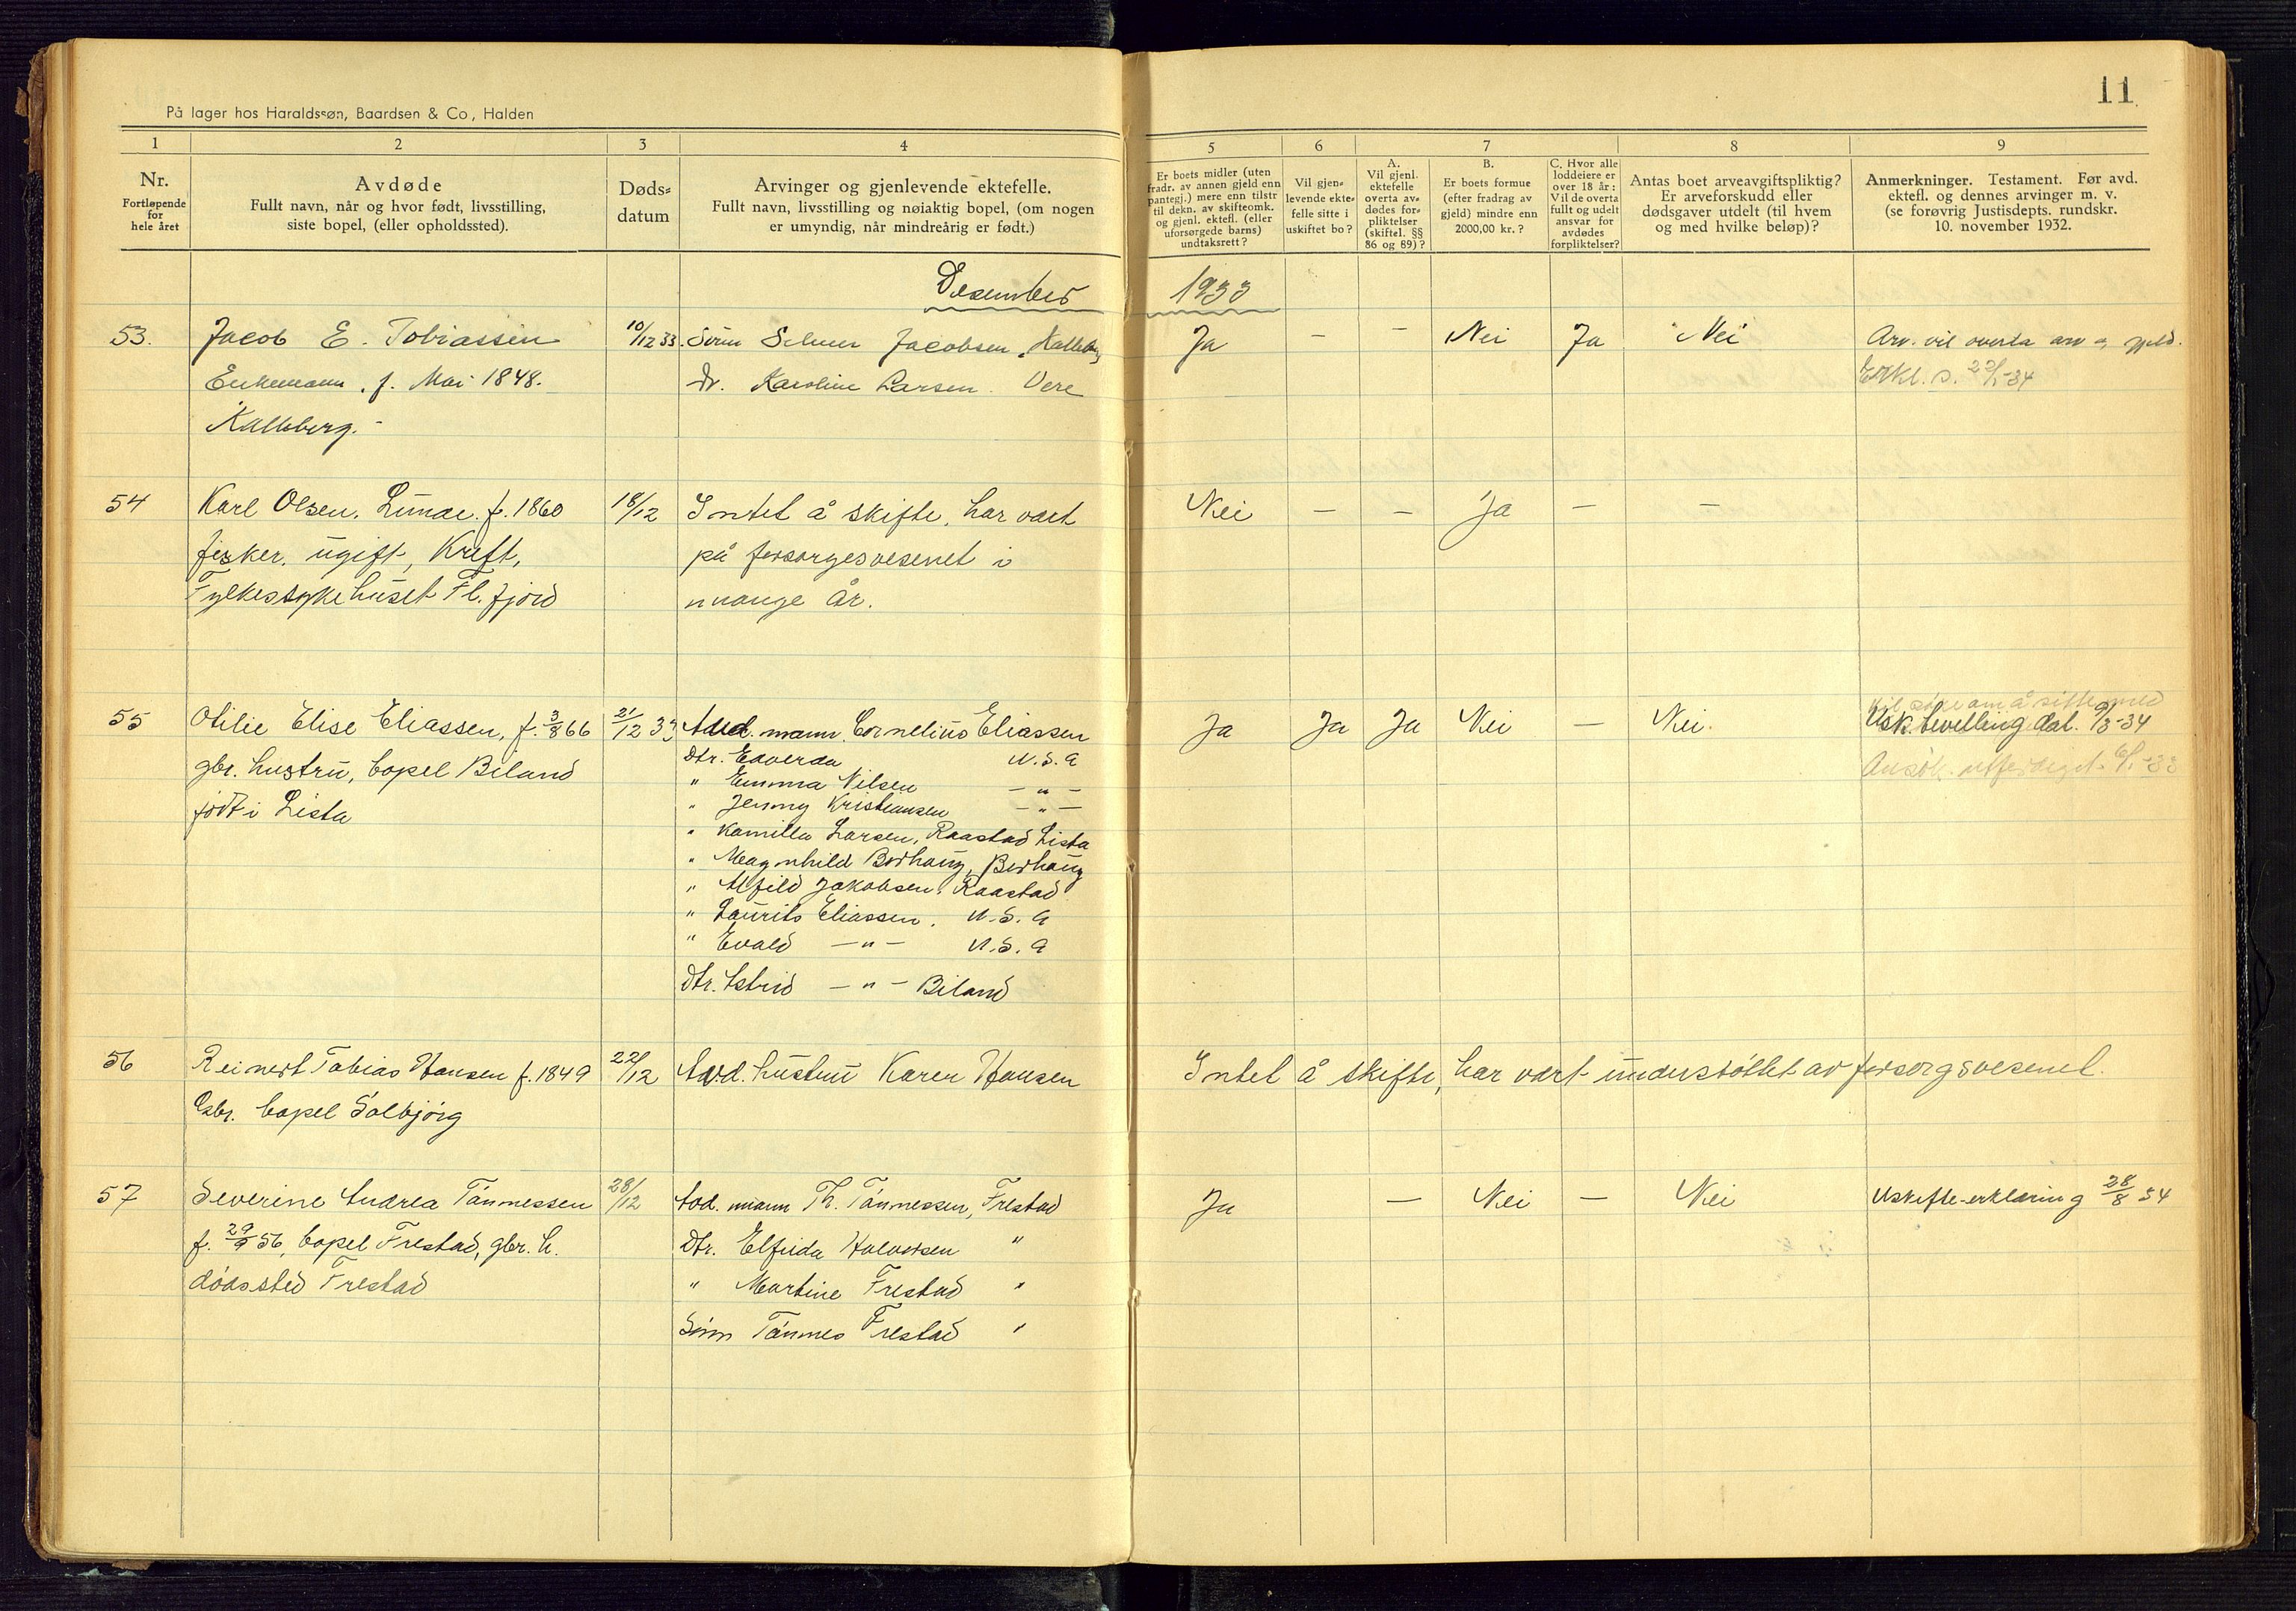 11
På lager hos Haraldssøn, Baardsen & Co, Halden
1 2 3 4 5 6 7 8 9
Nr.
Fortløpende
for
hele året
Avdøde
Fullt navn, når og hvor født, livsstilling,
siste bopel, (eller opholdssted).
Døds-
datum
Arvinger og gjenlevende ektefelle.
Fullt navn, livsstilling og nøiaktig bopel, (om nogen
er umyndig, når mindreårig er født.)
Er boets midler (uten
fradr. av annen gjeld enn
pantegj.) mere enn tilstr
til dekn. av skifteomk.
og gjenl. ektefl. (eller
uforsørgede barns)
undtaksrett?
Vil gjen-
levende ekte-
felle sitte i
uskiftet bo?
A.
Vil gjenl.
ektefelle
overta av-
dødes for-
pliktelser
(skiftel. §§
86 og 89)?
B.
Er boets formue
(efter fradrag av
gjeld) mindre enn
2000,00 kr.?
C. Hvor alle
loddeiere er
over 18 år:
Vil de overta
fullt og udelt
ansvar for
avdødes
forpliktelser?
Antas boet arveavgiftspliktig?
Er arveforskudd eller
dødsgaver utdelt (til hvem
og med hvilke beløp)?
Anmerkninger. Testament. Før avd.
ektefl. og dennes arvinger m. v.
(se forøvrig Justisdepts. rundskr.
10. november 1932.
Desember 1933
53. Jacob E. Tobiassen 10/12 33. Sønn Jacobsen, Kalleberg Ja – – Nei Ja Nei Arv. vil overta arv og gjeld.
Enkemann, f. Mai 1848. dr. Karoline Larsen. Vere Erkl. s. 22/1-34
Kalleberg. –
54 Karl Olsen, Lunde. f. 1860 18/12 Intet å skifte, har vært Nei – – Ja – –
fisker. ugift, Kreft, på forsorgesvesenet i
Fylkessykehuset Fl. fjord mange år.
Vil søke om å sitte med
55 Otilie Elise Eliassen, f. 3/8 66 21/12 33 Avd. mann. Cornelius Eliassen Ja Ja Ja Nei – Nei. Usk. bevilling dat. 9/3-34
gbr. hustru, bopel Biland Dtr. Edverda U.S.A Ansøk. utferdiget 6/1-33
født i Lista " Emma Nilsen – " –
" Jenny Kristiansen – " –
" Kamilla Larsen, Raastad Lista
" Magnhild Borhaug, Borhaug
" Alfild Jakobsen. Raastad
" Laurits Eliassen. U.S.A
" Evald – " – U.S.A
Dtr. Astrid – " – Biland
56 Reinert Tobias Hansen f. 1849 22/12 Avd. hustru Karen Hansen Intet å skifte, har vært understøttet av forsorgsvesenet.
Gbr. bopel Solbjørg
57 Severine Andrea Tønnessen 28/12 Avd. mann Th. Tønnessen, Frestad Ja – Nei – Nei Uskifte-erklæring 28/8 34
f. 29/9 56, bopel Frestad, gbr. h. Dtr. Elfrida Halvorsen "
dødssted Frestad " Martine Frestad "
Sønn Tønnes Frestad "